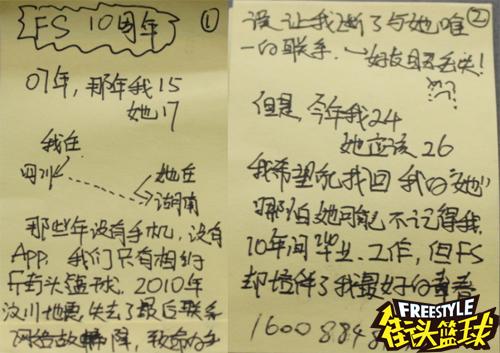 FS 10周年
①
07年，那年我15
她17
我在
四川
她在
湖南
那些年没有手机，没有
App。我们只有相约
F街头篮球。2010年
汶川地震，失去了最后联系
网络故障，致命的
②
误让我断了与她唯
一的联系.→好友目录丢失!
但是 今年我24
她应该 26
我希望能找回 我的"她"
哪怕她可能不记得我.
10年间毕业、工作，但FS
却陪伴了我最好的青春
16008848
FREESTYLE
街头篮球